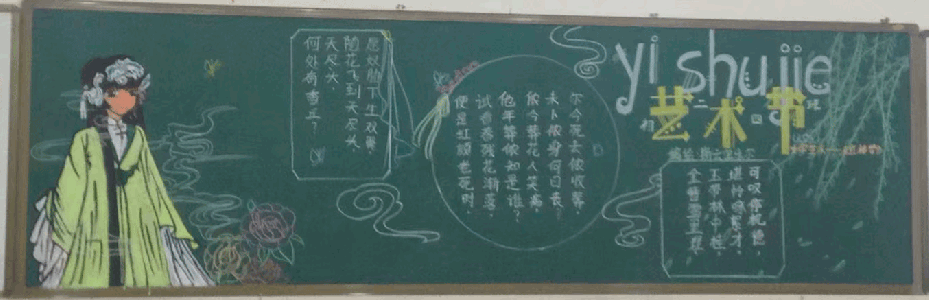 yi shu jie
艺术节
初二四班
愿奴胁下生双翼，
随花飞到天尽头，
天尽头，
何处有香丘？
尔今死去侬收葬，
未卜侬身何日丧？
侬今葬花人笑痴，
他年葬侬知是谁？
试看春残花渐落，
便是红颜老死时，
可叹停机德，
堪怜咏絮才，
玉带林中挂，
金簪雪里埋